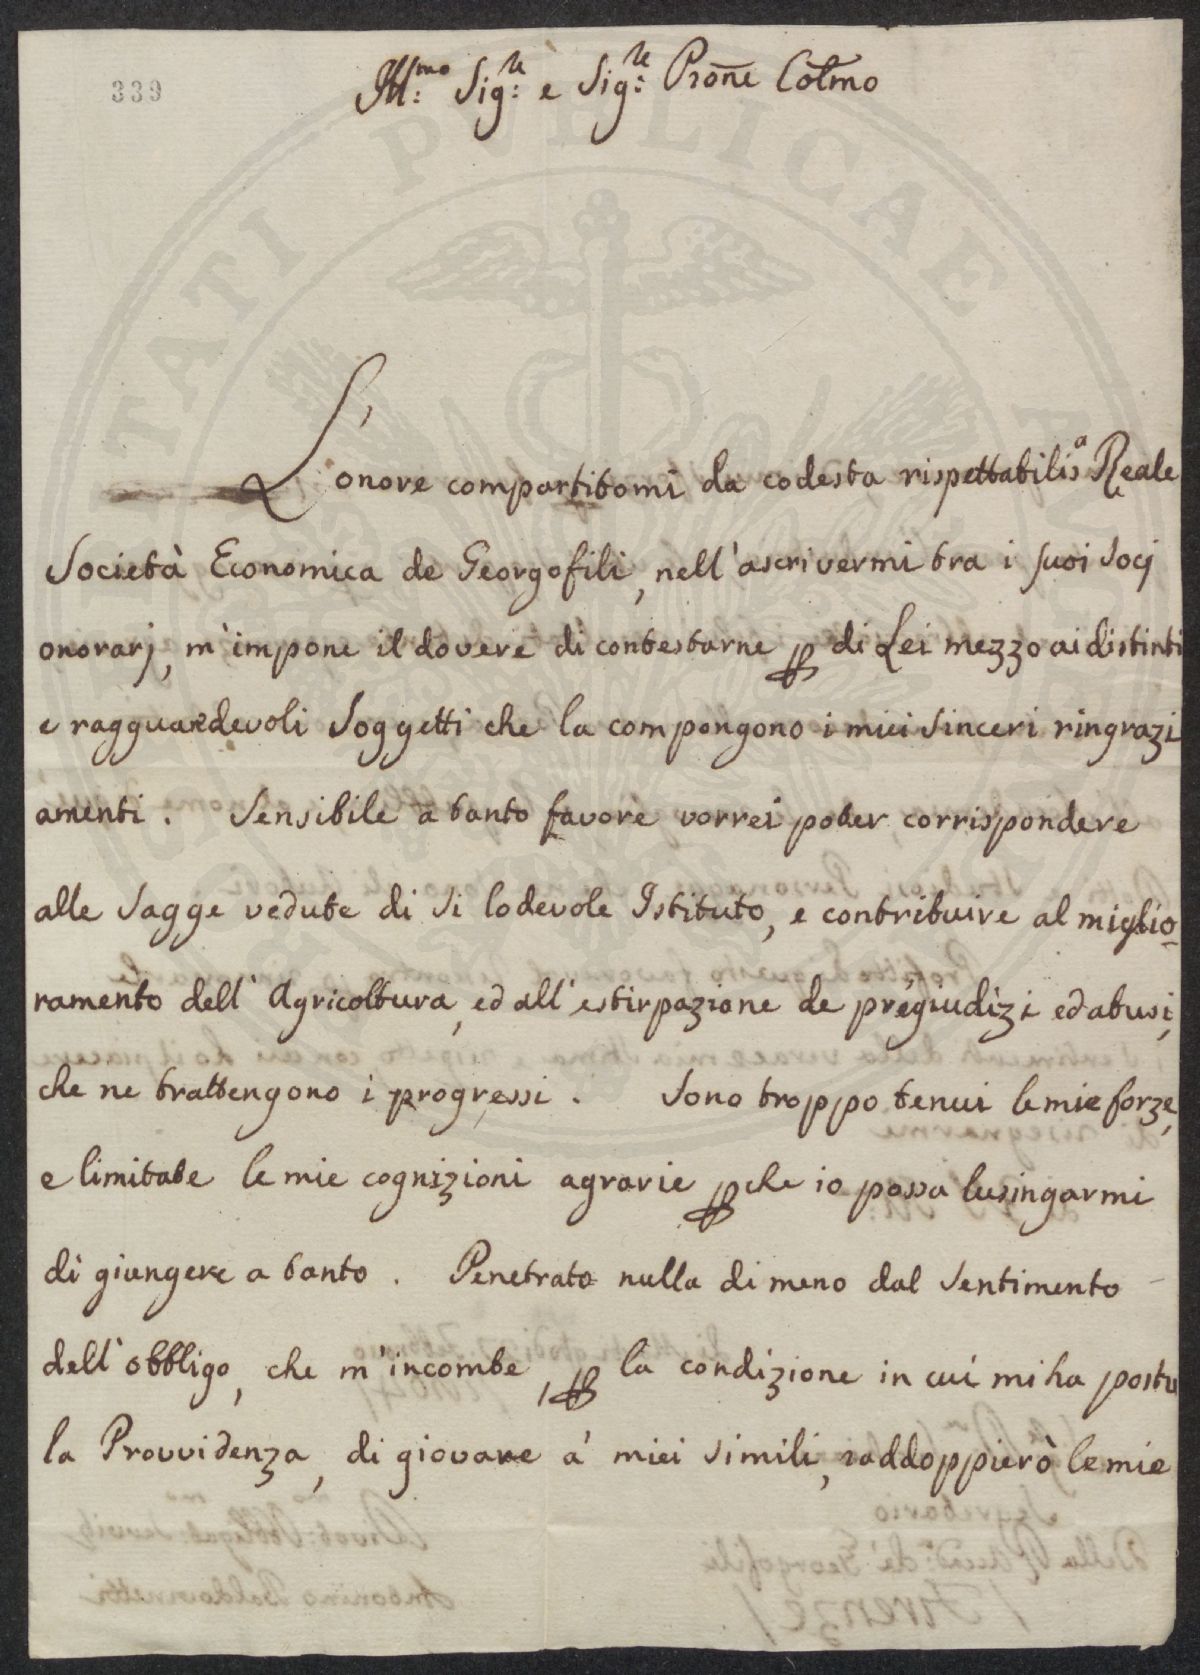 339
Ill:mo Sig:re è Sig:re Prone Colmo
L'onore compartitomi da codesta rispettabilis.a Reale
Società Economica de Georgofili, nell'ascrivermi tra i suoi Socj
onorarj, m'impone il dovere di contestarne p di Lei mezzo ai distinti
e ragguardevoli Soggetti che la compongono i miei sinceri ringrazi
amenti. Sensibile a tanto favore vorrei poter corrispondere
alle sagge vedute di si lodevole Istituto, e contribuire al miglio-
ramento dell'Agricoltura, ed all'estirpazione de pregiudizi ed abusi,
che ne trattengono i progressi. Sono troppo tenui le mie forze,
e limitate le mie cognizioni agrarie pche io possa lusingarmi
di giungere a tanto. Penetrato nulla di meno dal sentimento
dell'obbligo, che m'incombe, p la condizione in cui mi ha posto
la Provvidenza, di giovare a' miei simili, raddoppierò le mie
TATI PVBLICAE